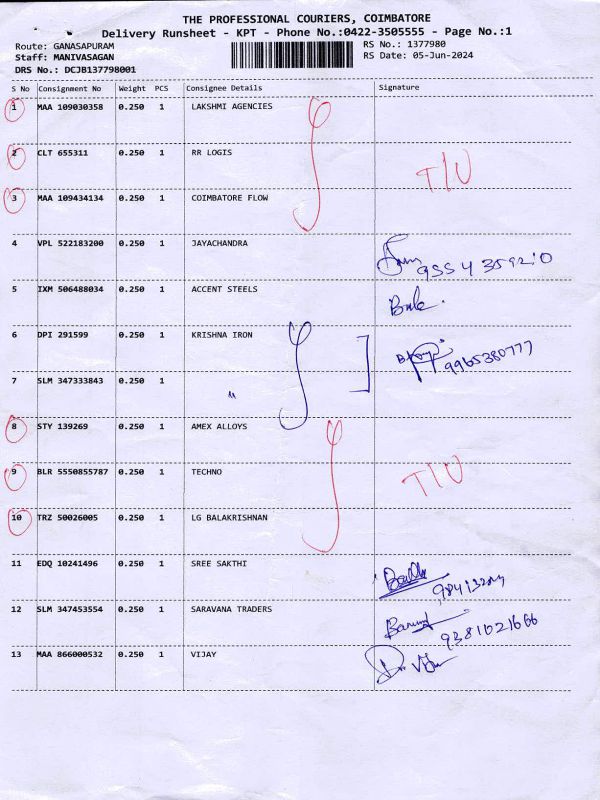 THE PROFESSIONAL COURIERS, COIMBATORE
Delivery Runsheet - KPT - Phone No.:0422-3505555 - Page No.:1
Route: GANASAPURAM RS No.: 1377980
Staff: MANIVASAGAN RS Date: 05-Jun-2024
DRS No.: DCJB137798001
S No Consignment No Weight PCS Consignee Details Signature
1 MAA 109030358 0.250 1 LAKSHMI AGENCIES
2 CLT 655311 0.250 1 RR LOGIS
T/U
3 MAA 109434134 0.250 1 COIMBATORE FLOW
4 VPL 522183200 0.250 1 JAYACHANDRA
5 IXM 506488034 0.250 1 ACCENT STEELS
6 DPI 291599 0.250 1 KRISHNA IRON 9965380777
7 SLM 347333843 0.250 1 "
8 STY 139269 0.250 1 AMEX ALLOYS
9 BLR 5550855787 0.250 1 TECHNO T/U
10 TRZ 50026005 0.250 1 LG BALAKRISHNAN
11 EDQ 10241496 0.250 1 SREE SAKTHI
12 SLM 347453554 0.250 1 SARAVANA TRADERS 9381021666
13 MAA 866000532 0.250 1 VIJAY